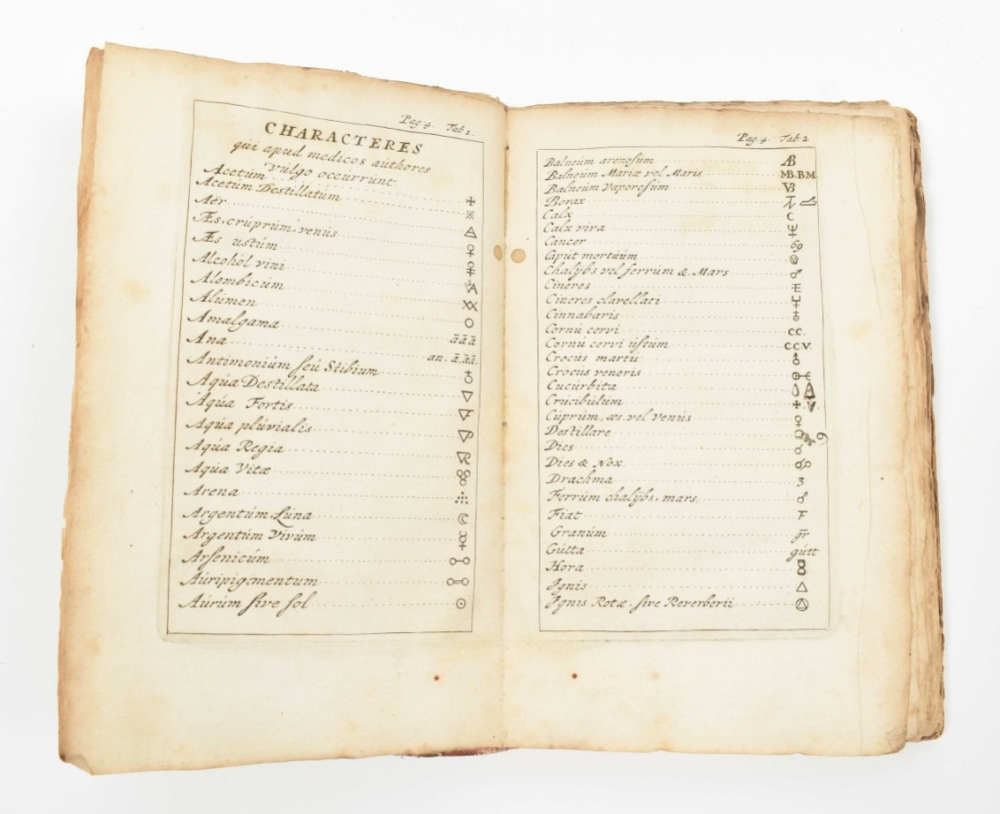 Pag 4. Tab 1.
CHARACTERES
qui apud medicos authores
vulgo occurrunt.
Acetum
Acetum Destillatum
Aër
Æs, cruprum, venus
Æs ustum
Alcohol vini
Alembicum
Alumen
Amalgama
Ana āāā
an. ā.āā.
Antimonium seu Stibium
Aqua Destillata
Aqua Fortis
Aqua pluvialis
Aqua Regia
Aqua Vitæ
Arena
Argentum Luna
Argentum Vivum
Arsenicum
Auripigmentum
Aurum sive sol
Pag 4 Tab 2
Balneum arenosum AB
Balneum Mariæ vel Maris MB.BM
Balneum Vaporosum VB
Borax
Calx C
Calx viva
Cancer 69
Caput mortuum
Chalybs vel ferrum & Mars ♂
Cineres
Cineres clavellati
Cinnabaris
Cornu cervi c.c.
Cornu cervi ustum c.c.v.
Crocus martis
Crocus veneris
Cucurbita
Crucibulum
Cuprum, æs, vel Venus ♀
Destillare
Dies
Dies & Nox
Drachma ʒ
Ferrum chalybs, mars. ♂
Fiat F
Granum gr
Gutta gutt
Hora
Ignis △
Ignis Rotæ, sive Reverberii